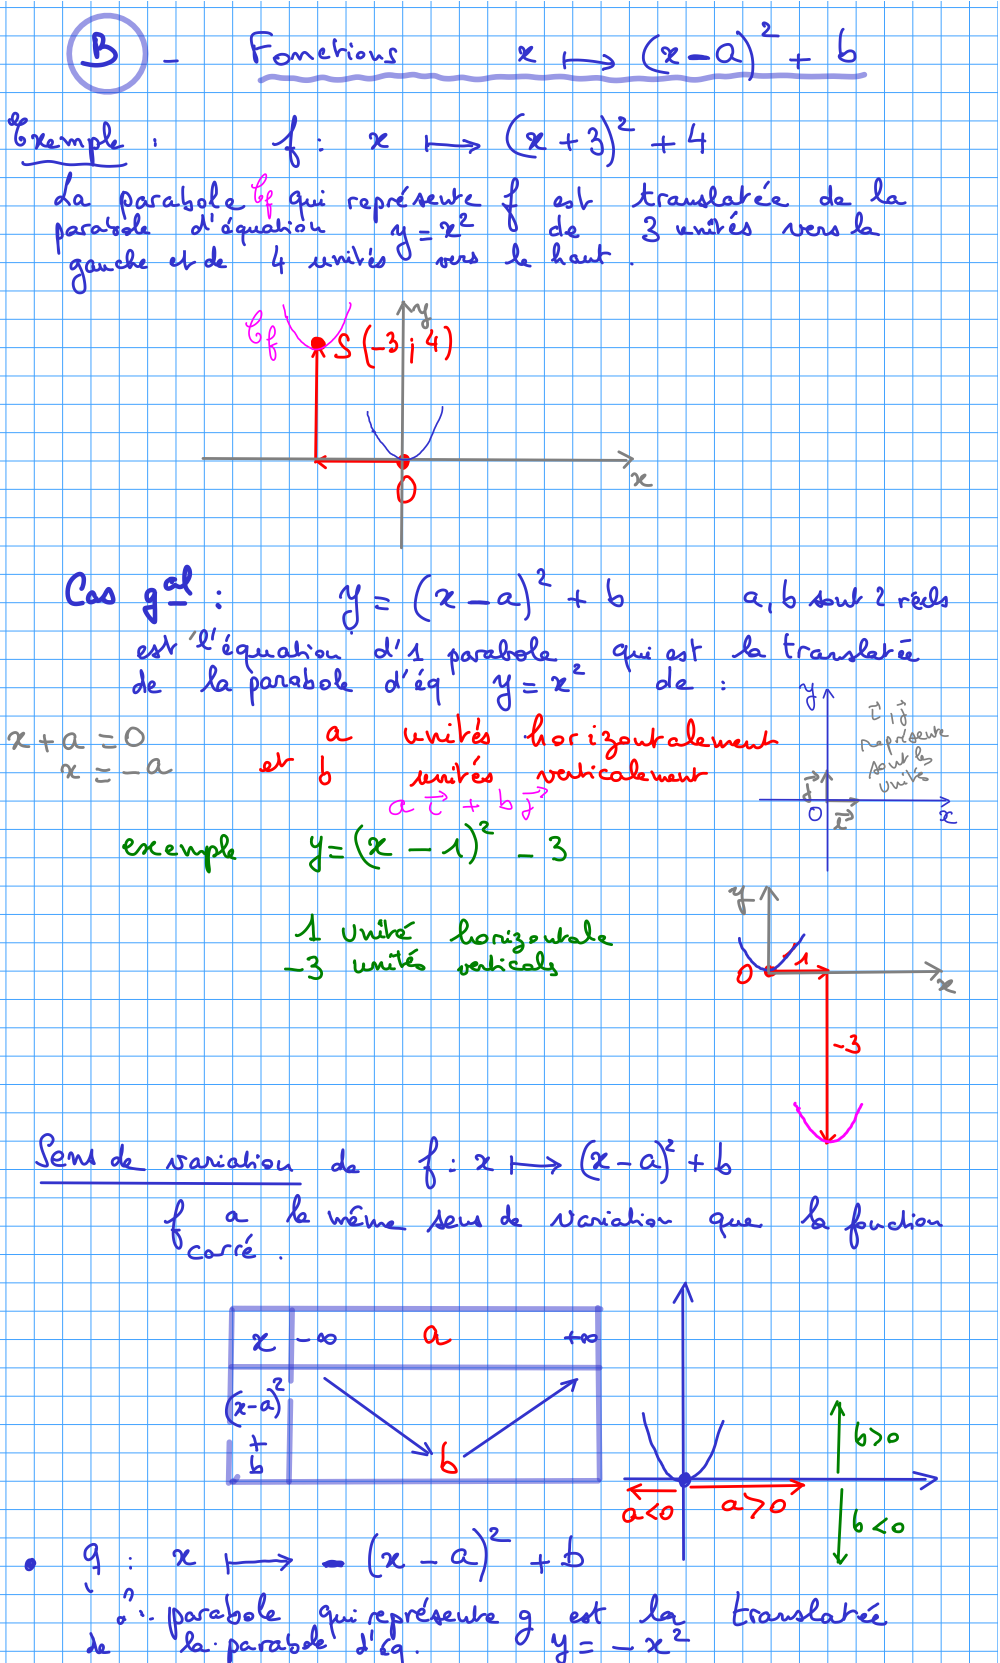 B - Fonctions x ⟼ (x-a)² + b
Exemple : f : x ⟼ (x+3)² + 4
La parabole Cf qui représente f est translatée de la
parabole d'équation y = x² de 3 unités vers la
gauche et de 4 unités vers le haut.
y
Cf
S (-3 ; 4)
x
O
Cas gal : y = (x-a)² + b a, b sont 2 réels
est l'équation d'1 parabole qui est la translatée
de la parabole d'éq y = x² de :
y
i⃗, j⃗
représente
sont les
unités
x + a = 0
x = -a
a unités horizontalement
et b unités verticalement
a i⃗ + b j⃗
j⃗
O i⃗ x
exemple y = (x - 1)² - 3
y
1 unité horizontale
-3 unités verticals
O 1 x
-3
Sens de variation de f : x ⟼ (x-a)² + b
f a le même sens de variation que la fonction
carré.
x -∞ a +∞
(x-a)²
+
b
b
b>0
a<0 a>0
b<0
• g : x ⟼ - (x-a)² + b
parabole qui représente g est la translatée
de la parabole d'éq. y = -x²